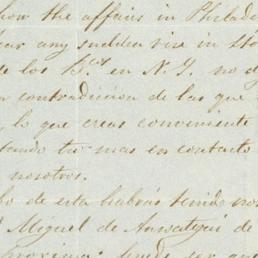 how the affairs in Philade
ear any sudden rise in sto
de los B.cos en N.Y. no d
contradicion de las que
, lo que creas conveniente
tando tu mas en contacto
nosotros.
bo de esta habrás tenido no
Miguel de